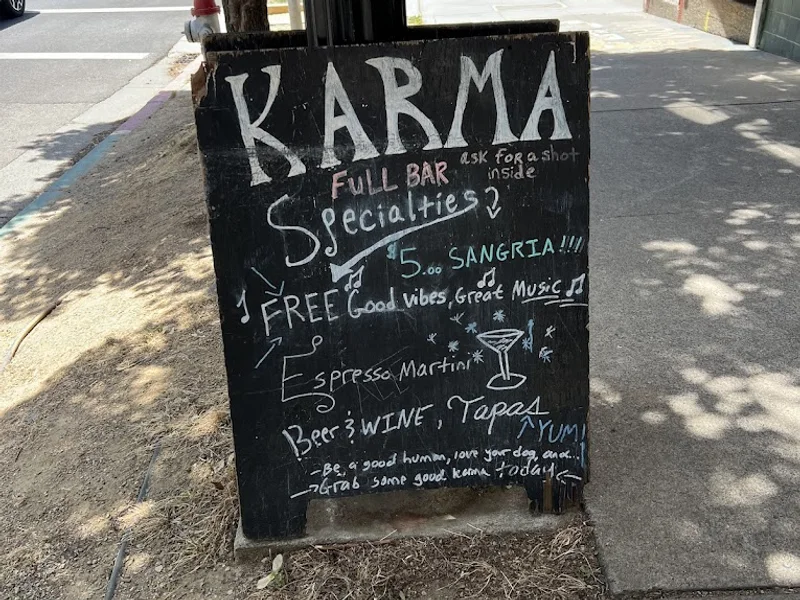 KARMA
FULL BAR
ask for a shot
inside
Specialties
$5.00 SANGRIA!!!!
FREE Good vibes, Great Music
Espresso Martini
Beer & WINE, Tapas
YUM!
-Be a good human, love your dog, and..
Grab some good karma today